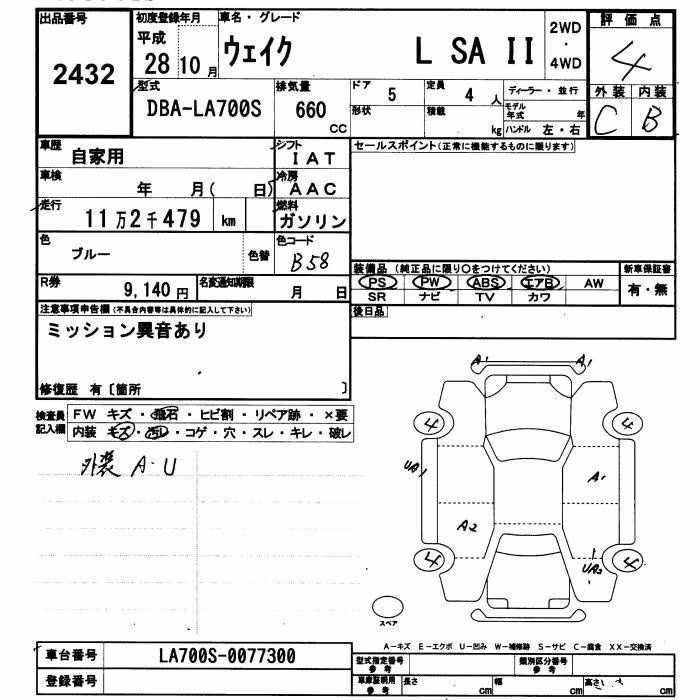 出品番号 初度登録年月 車名・グレード 評価点
2432 平成 28 10月 ウェイク L SA II 2WD・4WD 4
型式 排気量 ドア 定員 ディーラー・並行 外装 内装
DBA-LA700S 660 CC 5 4 人 モデル年式 年 C B
形状 積載 kg ハンドル 左・右
車歴 自家用 シフト IAT セールスポイント(正常に機能するものに限ります)
車検 年 月( 日) 冷房 AAC
走行 11万2千479 km 燃料 ガソリン
色 ブルー 色替 色コード B58
装備品 (純正品に限り○をつけてください) 新車保証書
R券 9,140円 名変通知期限 月 日 PS PW ABS エアB AW 有・無
SR ナビ TV カワ
注意事項申告欄(不具合内容等は具体的に記入して下さい) 後日品
ミッション異音あり
修復歴 有〔箇所 〕
検査員記入欄 FW キズ・飛石・ヒビ割・リペア跡・×要
内装 キズ・汚レ・コゲ・穴・スレ・キレ・破レ
外装 A・U
A1 A1
4 4
UA1 A1
A2
4 UA2 4
スペア
A-キズ E-エクボ U-凹み W-補修跡 S-サビ C-腐食 XX-交換済
車台番号 LA700S-0077300 型式指定番号 参考 類別区分番号 参考
登録番号 車庫証明用 参考 長さ cm 幅 cm 高さ cm